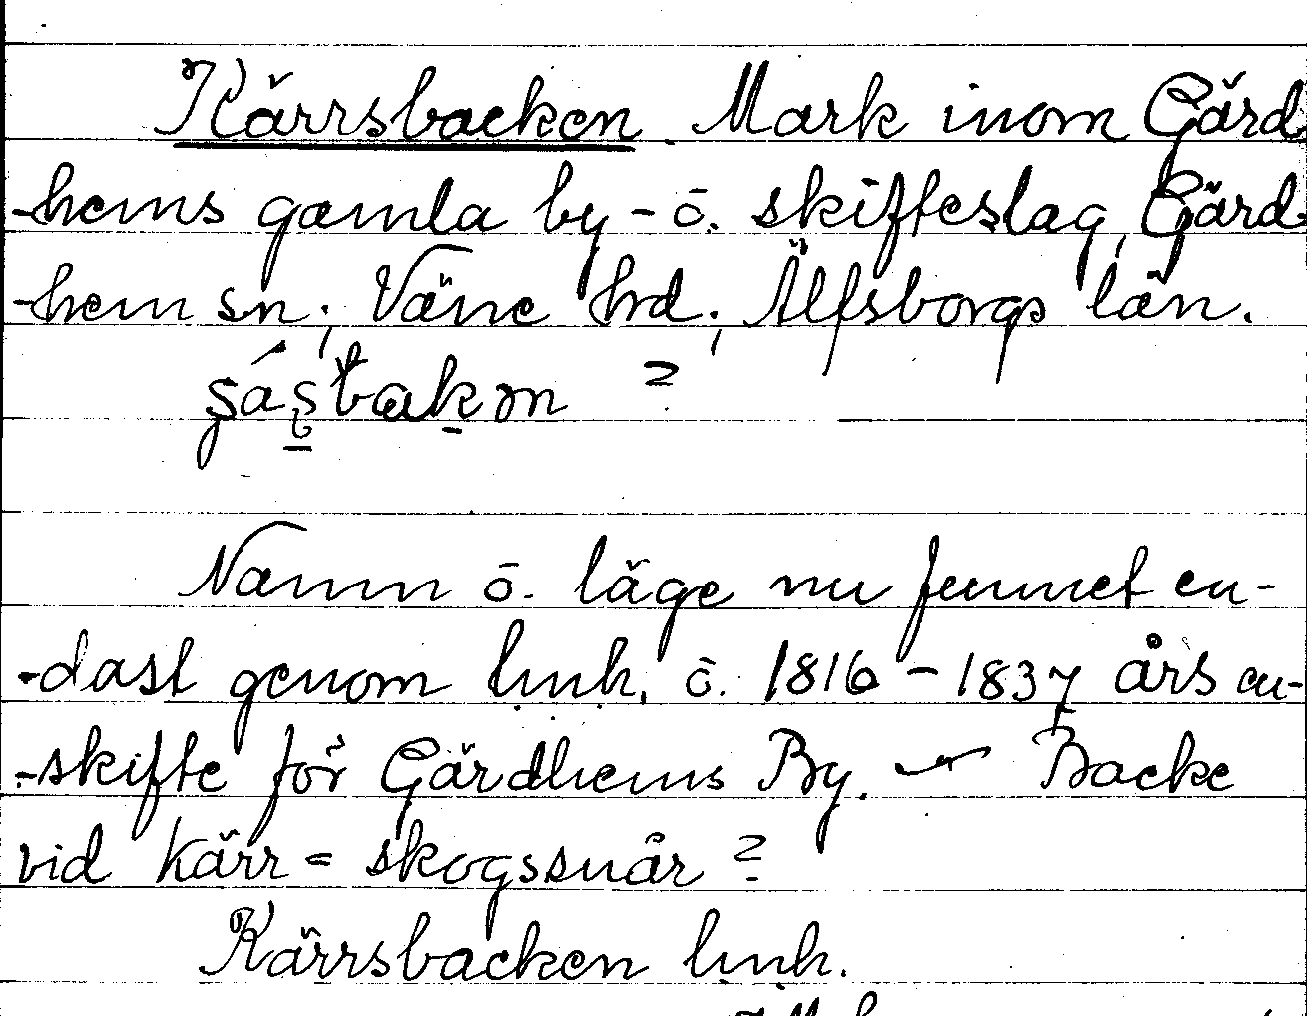 Kärrsbacken Mark inom Gärd
-hems gamla by - o. skifteslag, Gärd
-hem sn; Väne hrd; Älfsborgs län.
?
Namn o. läge nu funnet en-
-dast genom lmh. o. 1816 - 1837 års en-
-skifte för Gärdhems By. — Backe
vid kärr = skogssnår ?
Kärrsbacken lmh.